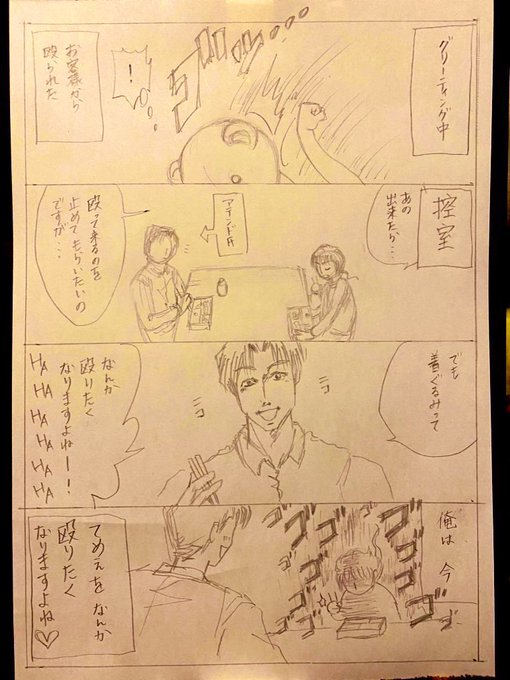 グリーティング中
ガッ…
お客様から
殴られた
!
控室
あの
出来たら…
アテンド氏
殴って来るのを
止めてもらいたいの
ですが…
でも
着ぐるみって
ニコ
ニコ
なんか
殴りたく
なりますよねー!
HA
HA
HA
HA
HA
HA
俺は今
ゴゴゴゴ
ゴゴゴゴ
てめぇをなんか
殴りたく
なりますよね♡